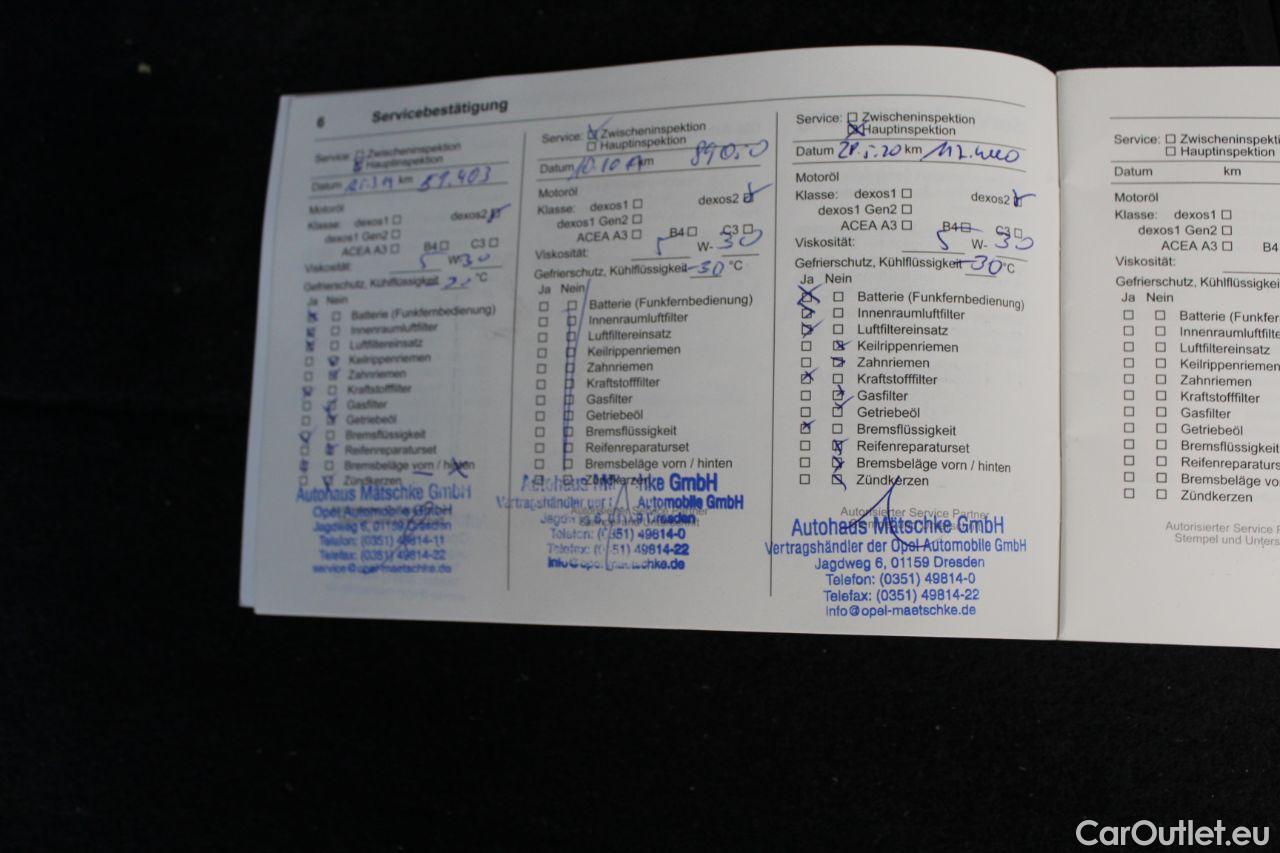 6 Servicebestätigung
Service: Zwischeninspektion
Hauptinspektion
Datum km 59.403
Motoröl
Klasse: dexos1 dexos2
dexos1 Gen2
ACEA A3 B4 C3
Viskosität: 5 W-30
Gefrierschutz, Kühlflüssigkeit °C
Ja Nein
Batterie (Funkfernbedienung)
Innenraumluftfilter
Luftfiltereinsatz
Keilrippenriemen
Zahnriemen
Kraftstofffilter
Gasfilter
Getriebeöl
Bremsflüssigkeit
Reifenreparaturset
Bremsbeläge vorn / hinten
Zündkerzen
Autohaus Mätschke GmbH
Opel Automobile GmbH
Jagdweg 6, 01159 Dresden
Telefon: (0351) 49814-11
Telefax: (0351) 49814-22
service@opel-maetschke.de
Service: Zwischeninspektion
Hauptinspektion
Datum km 89050
Motoröl
Klasse: dexos1 dexos2
dexos1 Gen2
ACEA A3 B4 C3
Viskosität: 5 W-30
Gefrierschutz, Kühlflüssigkeit -30 °C
Ja Nein
Batterie (Funkfernbedienung)
Innenraumluftfilter
Luftfiltereinsatz
Keilrippenriemen
Zahnriemen
Kraftstofffilter
Gasfilter
Getriebeöl
Bremsflüssigkeit
Reifenreparaturset
Bremsbeläge vorn / hinten
Zündkerzen
Autohaus Mätschke GmbH
Vertragshändler der Automobile GmbH
Jagdweg 6, 01159 Dresden
Telefon: (0351) 49814-0
Telefax: (0351) 49814-22
info@opel-maetschke.de
Service: Zwischeninspektion
Hauptinspektion
Datum 28.5.20 km 112.400
Motoröl
Klasse: dexos1 dexos2
dexos1 Gen2
ACEA A3 B4 C3
Viskosität: 5 W-30
Gefrierschutz, Kühlflüssigkeit -30 °C
Ja Nein
Batterie (Funkfernbedienung)
Innenraumluftfilter
Luftfiltereinsatz
Keilrippenriemen
Zahnriemen
Kraftstofffilter
Gasfilter
Getriebeöl
Bremsflüssigkeit
Reifenreparaturset
Bremsbeläge vorn / hinten
Zündkerzen
Autorisierter Service Partner
Autohaus Mätschke GmbH
Vertragshändler der Opel Automobile GmbH
Jagdweg 6, 01159 Dresden
Telefon: (0351) 49814-0
Telefax: (0351) 49814-22
info@opel-maetschke.de
Service: Zwischeninspekti
Hauptinspektion
Datum km
Motoröl
Klasse: dexos1
dexos1 Gen2
ACEA A3 B4
Viskosität:
Gefrierschutz, Kühlflüssigkei
Ja Nein
Batterie (Funkfer
Innenraumluftfilter
Luftfiltereinsatz
Keilrippenriemen
Zahnriemen
Kraftstofffilter
Gasfilter
Getriebeöl
Bremsflüssigkeit
Reifenreparaturse
Bremsbeläge vorn
Zündkerzen
Autorisierter Service P
Stempel und Unters
CarOutlet.eu